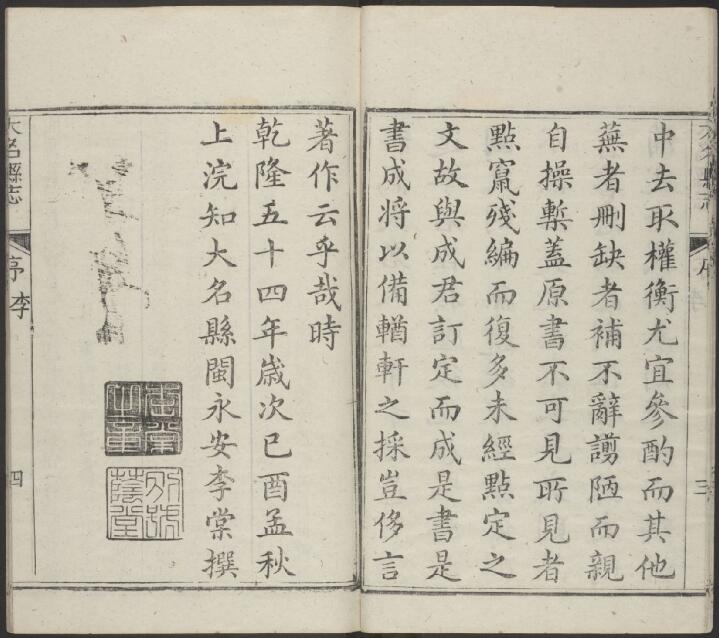 中去取權衡尤宜參酌而其他
蕪者刪缺者補不辭謭陋而親
自操槧蓋原書不可見所見者
點竄殘編而復多未經點定之
文故與成君訂定而成是書是
書成將以備輶軒之採豈侈言
著作云乎哉時
乾隆五十四年歲次己酉孟秋
上浣知大名縣閩永安李棠撰
大名縣志
序 李
四